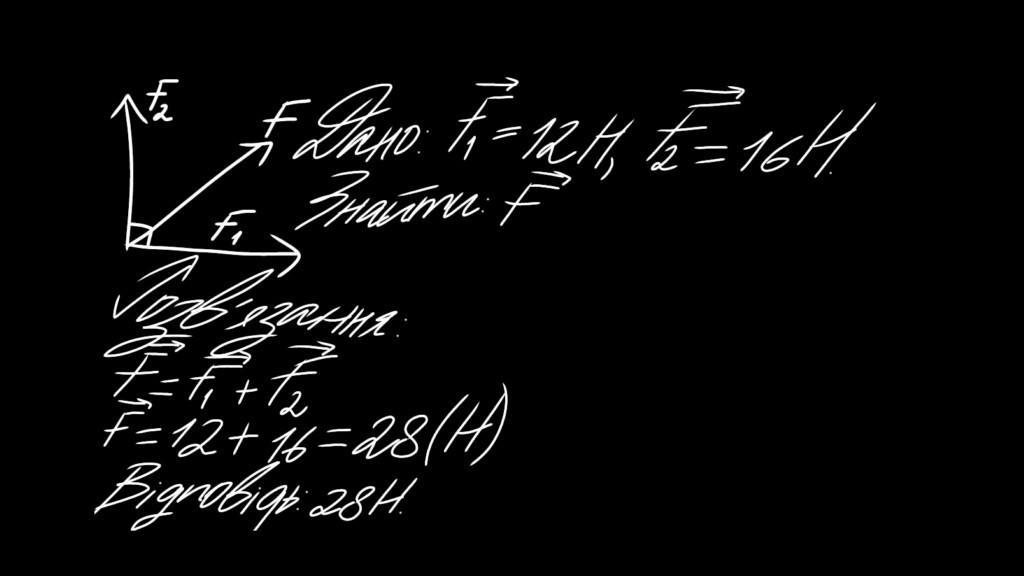 F₂
F
F₁
Дано: F⃗₁ = 12 Н, F⃗₂ = 16 Н.
Знайти: F⃗
Розв'язання:
F⃗ = F⃗₁ + F⃗₂
F⃗ = 12 + 16 = 28 (Н)
Відповідь: 28 Н.